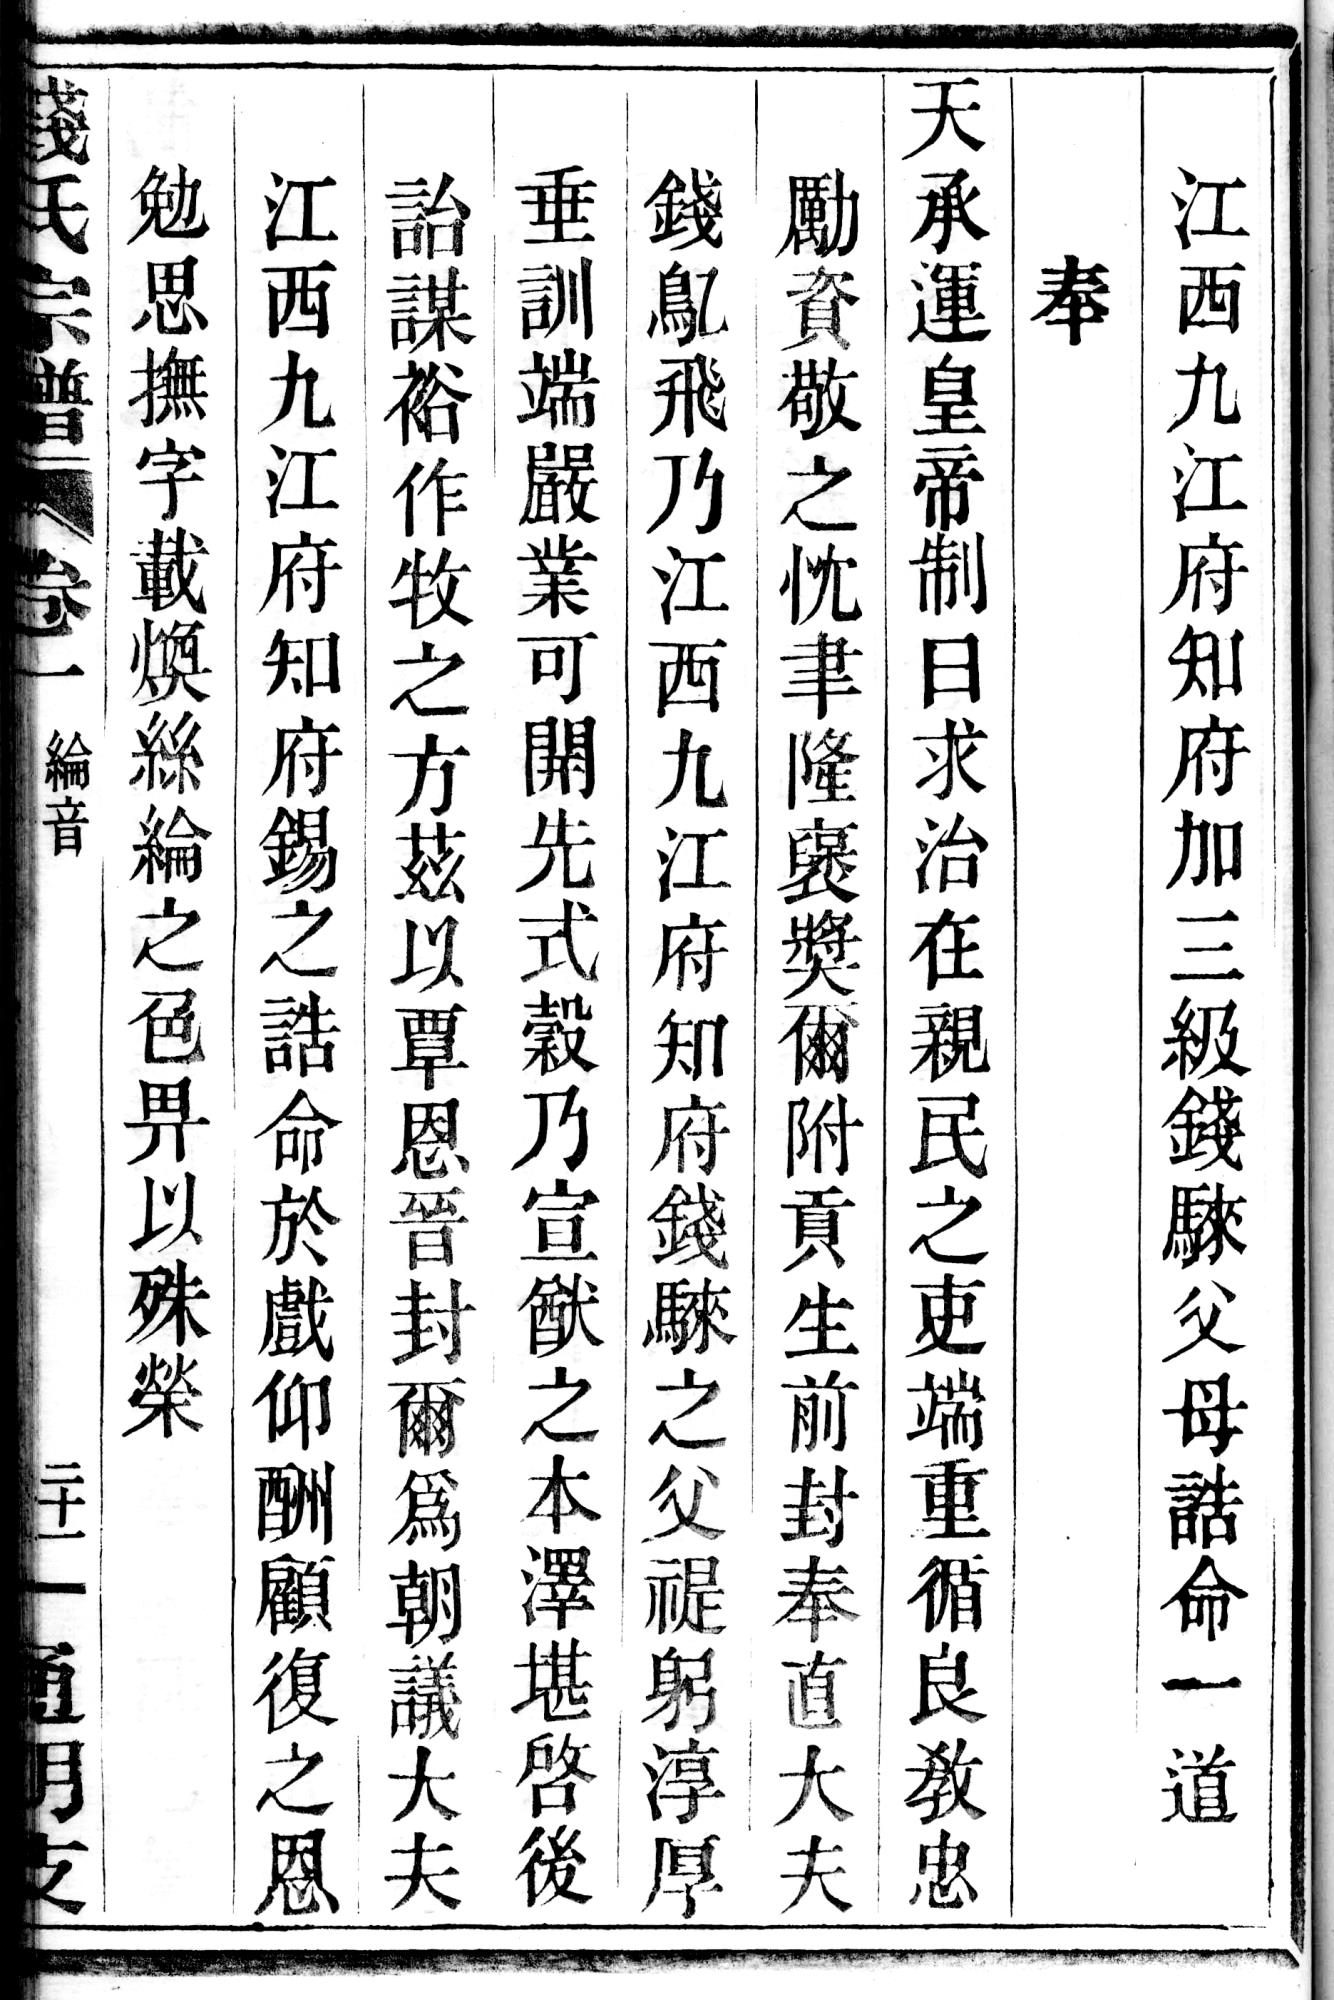 江西九江府知府加三級錢騋父母誥命一道
奉
天承運皇帝制曰求治在親民之吏端重循良教忠
勵資敬之忱聿隆褒獎爾附貢生前封奉直大夫
錢鳦飛乃江西九江府知府錢騋之父禔躬淳厚
垂訓端嚴業可開先式穀乃宣猷之本澤堪啓後
詒謀裕作牧之方茲以覃恩晉封爾爲朝議大夫
江西九江府知府錫之誥命於戲仰酬顧復之恩
勉思撫字載煥絲綸之色畀以殊榮
錢氏宗譜 卷一 綸音 二十一 通明支